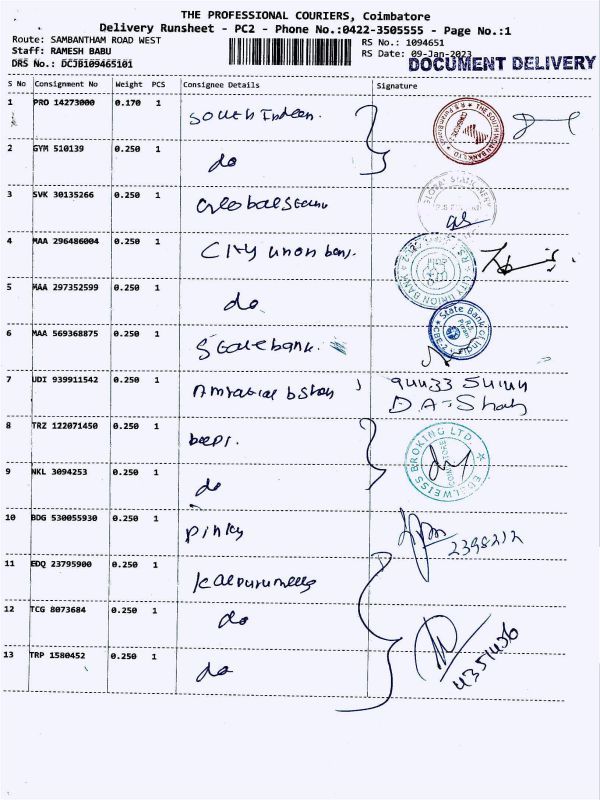 THE PROFESSIONAL COURIERS, Coimbatore
Delivery Runsheet - PC2 - Phone No.:0422-3505555 - Page No.:1
Route: SAMBANTHAM ROAD WEST
RS No.: 1094651
Staff: RAMESH BABU
RS Date: 09-Jan-2023
DOCUMENT DELIVERY
DRS No.: DCJB109465101
S No Consignment No Weight PCS Consignee Details Signature
1 PRO 14273000 0.170 1 South Indian.
THE SOUTH INDIAN BANK LTD
2 GYM 510139 0.250 1 do
3 SVK 30135266 0.250 1
GLOBAL
4 MAA 296486004 0.250 1 City union bank.
CITY UNION BANK
5 MAA 297352599 0.250 1 do
6 MAA 569368875 0.250 1 State bank.
State Bank of India
7 UDI 939911542 0.250 1
D.A-Shah
8 TRZ 122071450 0.250 1
EDELWEISS BROKING LTD.
COIMBATORE
9 NKL 3094253 0.250 1 do
10 BDG 530055930 0.250 1 pinky
2398212
11 EDQ 23795900 0.250 1
12 TCG 8073684 0.250 1 do
13 TRP 1580452 0.250 1 do
4351436